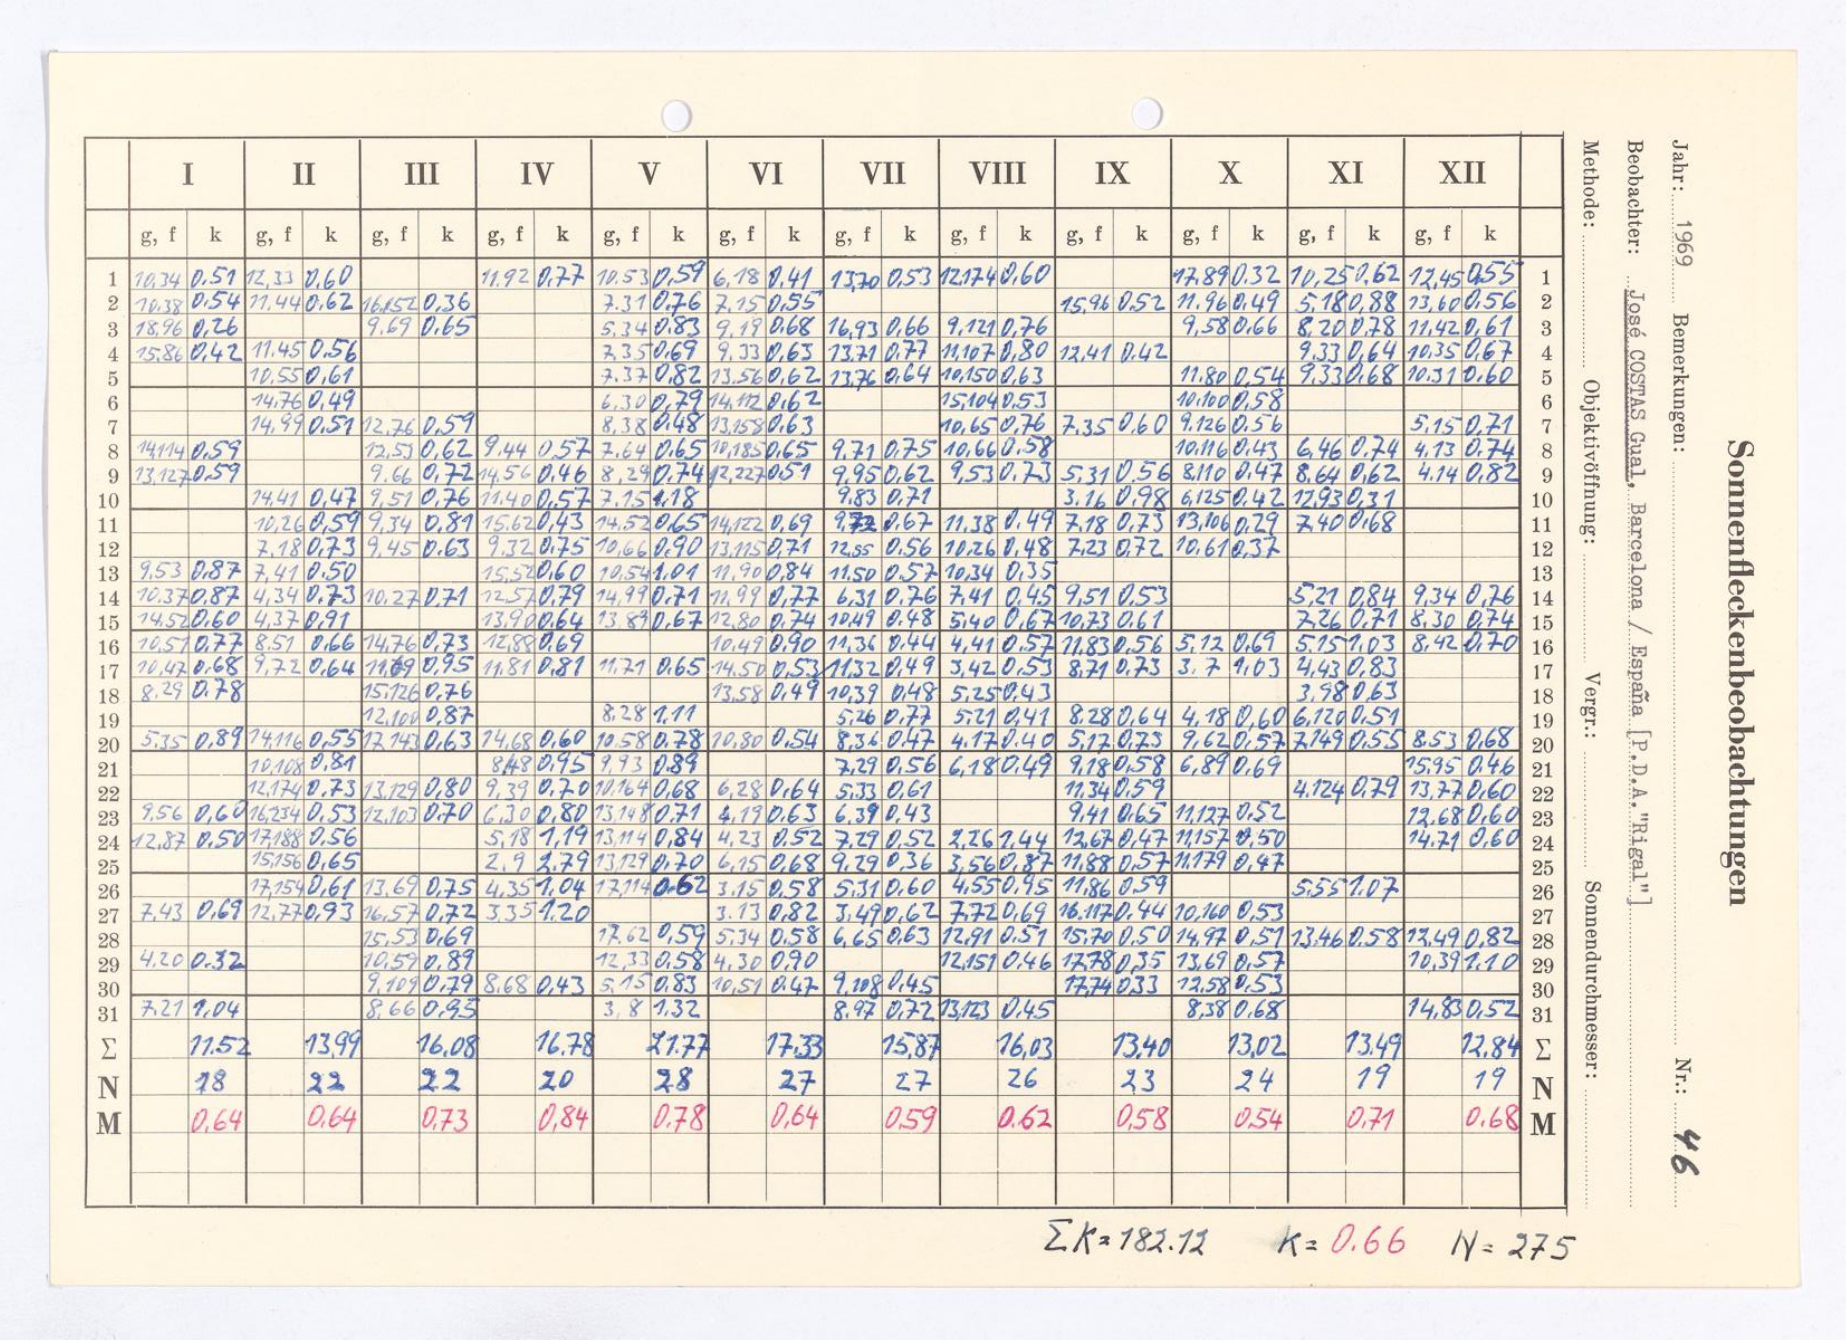 I II III IV V VI VII VIII IX X XI XII
g, f k g, f k g, f k g, f k g, f k g, f k g, f k g, f k g, f k g, f k g, f k g, f k
1 10,34 0.51 12,33 0,60 11,92 0,77 10.53 0,59 6,18 0.41 13,70 0,53 12,174 0,60 17.89 0.32 10,25 0.62 12,45 0.55 1
2 10.38 0.54 11,44 0,62 16,152 0,36 7.31 0,76 7,15 0,55 15,96 0.52 11.96 0,49 5,18 0,88 13,60 0.56 2
3 18,96 0,26 9.69 0,65 5.34 0.83 9,19 0.68 16,93 0,66 9,121 0,76 9,58 0,66 8,20 0,78 11,42 0,61 3
4 15.86 0,42 11.45 0,56 7,35 0,69 9,33 0,63 13,71 0,77 11,107 0,80 12,41 0,42 9.33 0,64 10,35 0,67 4
5 10,55 0,61 7.37 0,82 13.56 0,62 13,76 0,64 10,150 0,63 11.80 0,54 9,33 0,68 10.31 0.60 5
6 14,76 0,49 6,30 0,79 14,112 0,62 15,104 0,53 10,100 0,58 6
7 14,99 0,51 12,76 0,59 8,38 0,48 13,158 0,63 10,65 0,76 7,35 0,60 9,126 0,56 5,15 0,71 7
8 14,114 0,59 12,53 0,62 9,44 0,57 7,64 0,65 10,185 0,65 9,71 0,75 10,66 0.58 10,116 0,43 6,46 0,74 4,13 0,74 8
9 13,127 0,59 9.66 0,72 14,56 0,46 8,29 0,74 12,227 0,51 9,95 0,62 9,53 0,73 5,31 0,56 8,110 0,47 8,64 0,62 4.14 0,82 9
10 14,41 0,47 9,51 0,76 11.40 0,57 7.15 1.18 9.83 0,71 3.16 0,98 6,125 0,42 12,93 0,31 10
11 10,26 0,59 9,34 0,81 15,62 0,43 14,52 0,65 14,122 0,69 9,72 0,67 11.38 0.49 7,18 0,73 13,106 0,29 7,40 0,68 11
12 7.18 0,73 9,45 0.63 9,32 0,75 10,66 0,90 13,115 0,71 12,55 0,56 10,26 0,48 7,23 0,72 10,61 0,37 12
13 9,53 0,87 7,41 0.50 15,52 0,60 10,54 1.01 11,90 0,84 11.50 0,57 10,34 0,35 13
14 10,37 0,87 4,34 0,73 10,27 0,71 12,57 0,79 14,99 0,71 11,99 0,77 6,31 0,76 7.41 0,45 9,51 0,53 5,21 0,84 9,34 0,76 14
15 14,52 0,60 4,37 0,91 13,90 0,64 13,89 0,67 12,80 0,74 10,49 0,48 5,40 0,67 10,73 0,61 7,26 0,71 8,30 0,74 15
16 10,51 0,77 8.51 0,66 14,76 0,73 12,88 0,69 10,49 0,90 11,36 0,44 4,41 0,57 11,83 0,56 5,12 0,69 5.15 1.03 8,42 0,70 16
17 10,47 0,68 9,72 0,64 11,69 0,95 11,81 0,81 11,71 0,65 14.50 0,53 11,32 0,49 3,42 0,53 8,71 0,73 3.7 1,03 4,43 0,83 17
18 8.29 0.78 15,126 0,76 13,58 0,49 10,39 0,48 5.25 0.43 3,98 0,63 18
19 12,100 0,87 8,28 1,11 5,26 0,77 5.21 0,41 8,28 0,64 4,18 0,60 6,120 0,51 19
20 5,35 0,89 14,116 0,55 17,143 0,63 14,68 0,60 10.58 0,78 10,80 0,54 8,36 0,47 4.17 0.40 5,17 0,73 9,62 0,57 7,149 0,55 8.53 0,68 20
21 10,108 0,81 8,48 0,95 9,93 0.89 7.29 0,56 6,18 0.49 9,18 0,58 6,89 0,69 15,95 0,46 21
22 12,174 0,73 13,129 0,80 9,39 0,70 10,164 0,68 6,28 0,64 5.33 0,61 11,34 0,59 4.124 0,79 13,77 0,60 22
23 9,56 0,60 16,234 0,53 12,103 0,70 6,30 0,80 13,148 0,71 4,19 0,63 6,39 0,43 9,41 0,65 11,127 0,52 12,68 0,60 23
24 12,87 0,50 17,188 0,56 5,18 1,19 13,114 0,84 4,23 0,52 7,29 0,52 2,26 1,44 12,67 0,47 11,157 0,50 14,71 0,60 24
25 15,156 0,65 2.9 2.79 13,129 0,70 6,15 0,68 9,29 0,36 3,56 0,87 11,88 0,57 11,179 0,47 25
26 17,154 0,61 13,69 0,75 4,35 1,04 17,114 0.62 3.15 0,58 5.31 0,60 4.55 0,95 11,86 0,59 5,55 1.07 26
27 7,43 0,69 12,77 0,93 16,57 0,72 3.35 1.20 3.13 0,82 3,49 0,62 7,72 0,69 16.117 0,44 10,160 0,53 27
28 15,53 0,69 17,62 0,59 5,34 0,58 6,65 0,63 12,91 0.51 15,70 0,50 14,97 0,51 13,46 0,58 12,49 0,82 28
29 4.20 0.32 10,59 0,89 12,33 0,58 4,30 0,90 12,151 0,46 17,78 0,35 13,69 0,57 10,39 1.10 29
30 9,109 0,79 8,68 0,43 5,15 0,83 10,51 0.47 9,108 0,45 17,74 0,33 12,58 0,53 30
31 7,21 1,04 8,66 0,95 3,8 1.32 8.97 0,72 13,123 0.45 8,38 0.68 14,83 0,52 31
Σ 11.52 13,99 16,08 16.78 21.77 17.33 15,87 16,03 13,40 13,02 13.49 12,84 Σ
N 18 22 22 20 28 27 27 26 23 24 19 19 N
M 0,64 0.64 0.73 0,84 0.78 0,64 0.59 0.62 0,58 0.54 0.71 0.68 M
ΣK = 182.12 K = 0.66 N = 275
Sonnenfleckenbeobachtungen
Jahr: 1969 Bemerkungen: Nr.: 46
Beobachter: José COSTAS Gual, Barcelona / España [P.D.A. "Rigal"]
Methode: Objektivöffnung: Vergr.: Sonnendurchmesser: